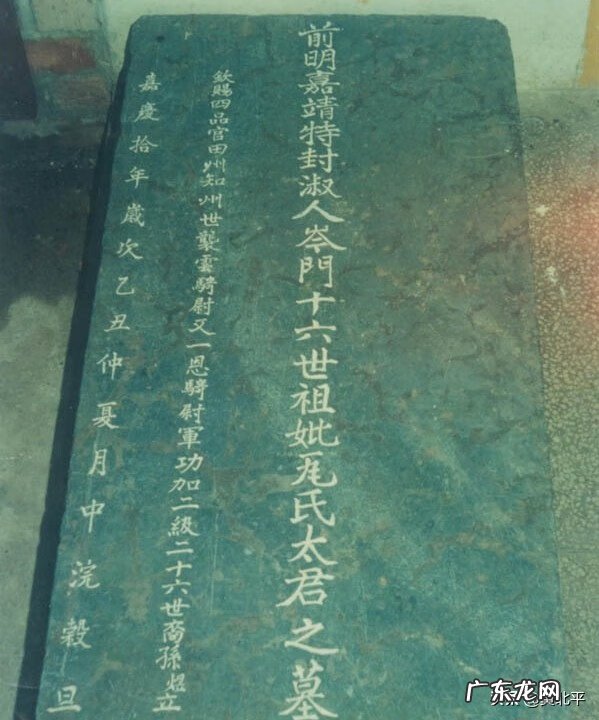 前明嘉靖特封淑人岑門十六世祖妣瓦氏太君之墓
欽賜四品官田州知州世襲雲騎尉又一恩騎尉軍功加二級二十六世裔孫煜立
嘉慶拾年歲次乙丑仲夏月中浣穀旦
广东龙网
头条 @
北平